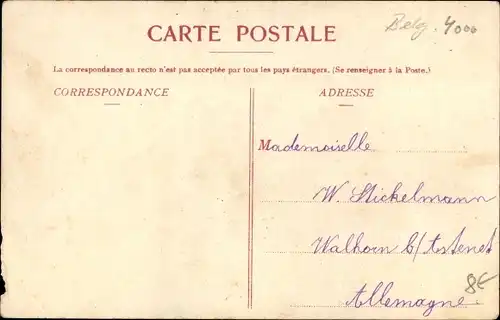 Belg. 4000
CARTE POSTALE
La correspondance au recto n'est pas acceptée par tous les pays étrangers. (Se renseigner à la Poste.)
CORRESPONDANCE
ADRESSE
Mademoiselle
W. Stickelmann
Walhorn b/Astenet
Allemagne
8€